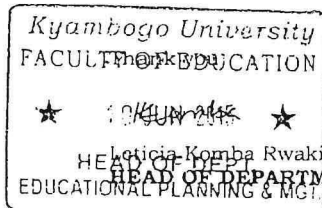 Kyambogo University
FACULTY OF EDUCATION
Thank you
JUN
Leticia Komba Rwaki
HEAD OF DEPT
HEAD OF DEPARTM
EDUCATIONAL PLANNING & MGT.